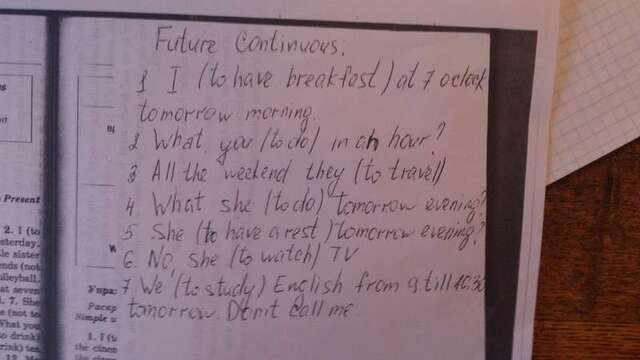 Future Continuous.
1 I (to have breakfast) at 7 oclock
tomorrow morning.
2 What you (to do) in an hour?
3 All the weekend they (to travel)
4 What she (to do) tomorrow evening?
5. She (to have a rest) tomorrow evening?
6. No, she (to watch) TV
7 We (to study) English from 9 till 10:30
tomorrow. Don't call me.
Present
2. I (to
sterday.
le sister
ends (not
lleyball.
at seven
l. 7. She
s (not to
What you
to drink)
rink) tea
Упра
Расср
Simple u
1. I (t
the cinem